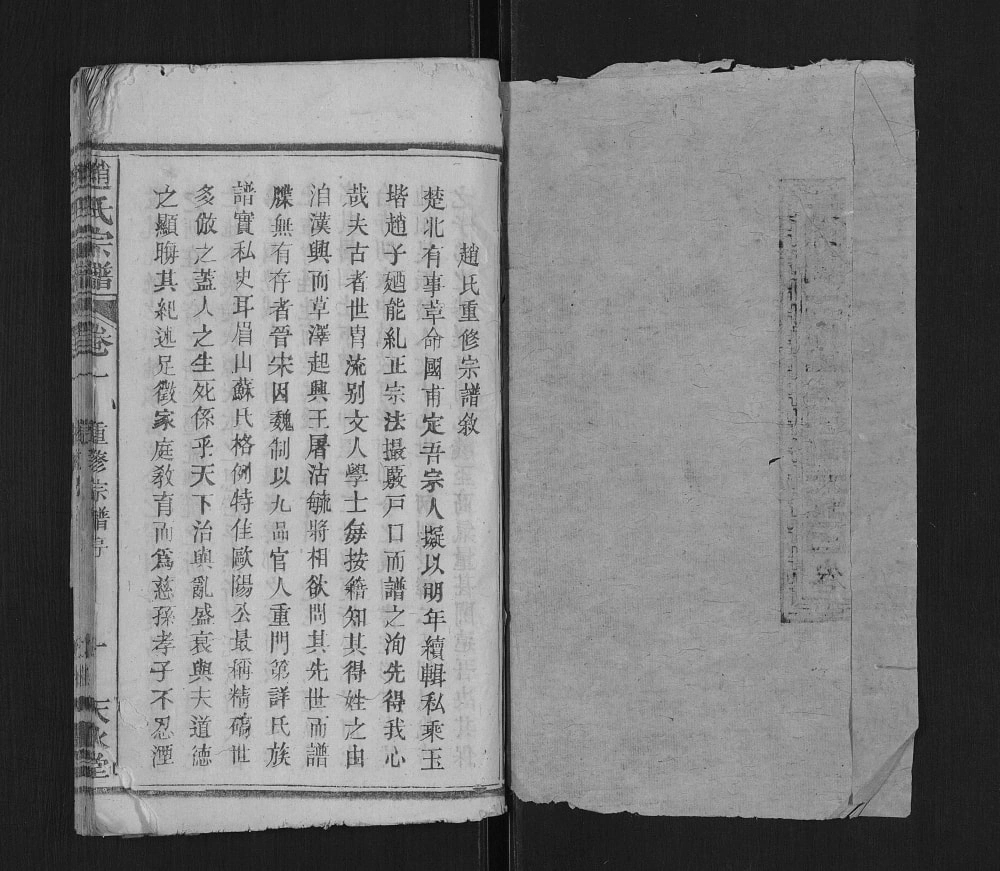 趙氏重修宗譜敘
楚北有事革命國甫定吾宗人擬以明年續輯私乘玉
堦趙子廼能糺正宗法撮覈戸口而譜之洵先得我心
㦲夫古者世胄流别文人學士每按籍知其得姓之由
洎漢興而草澤起興王屠沽毓將相欲問其先世而譜
牒無有存者晉宋因魏制以九品官人重門第詳氏族
譜實私史耳眉山蘇氏格例特佳歐陽公最稱精碻世
多倣之蓋人之生死係乎天下治與亂盛衰與夫道德
之顯晦其紀述足徵家庭教育而爲慈孫孝子不忍湮
趙氏宗譜
卷一
重修宗譜序
一
天水堂